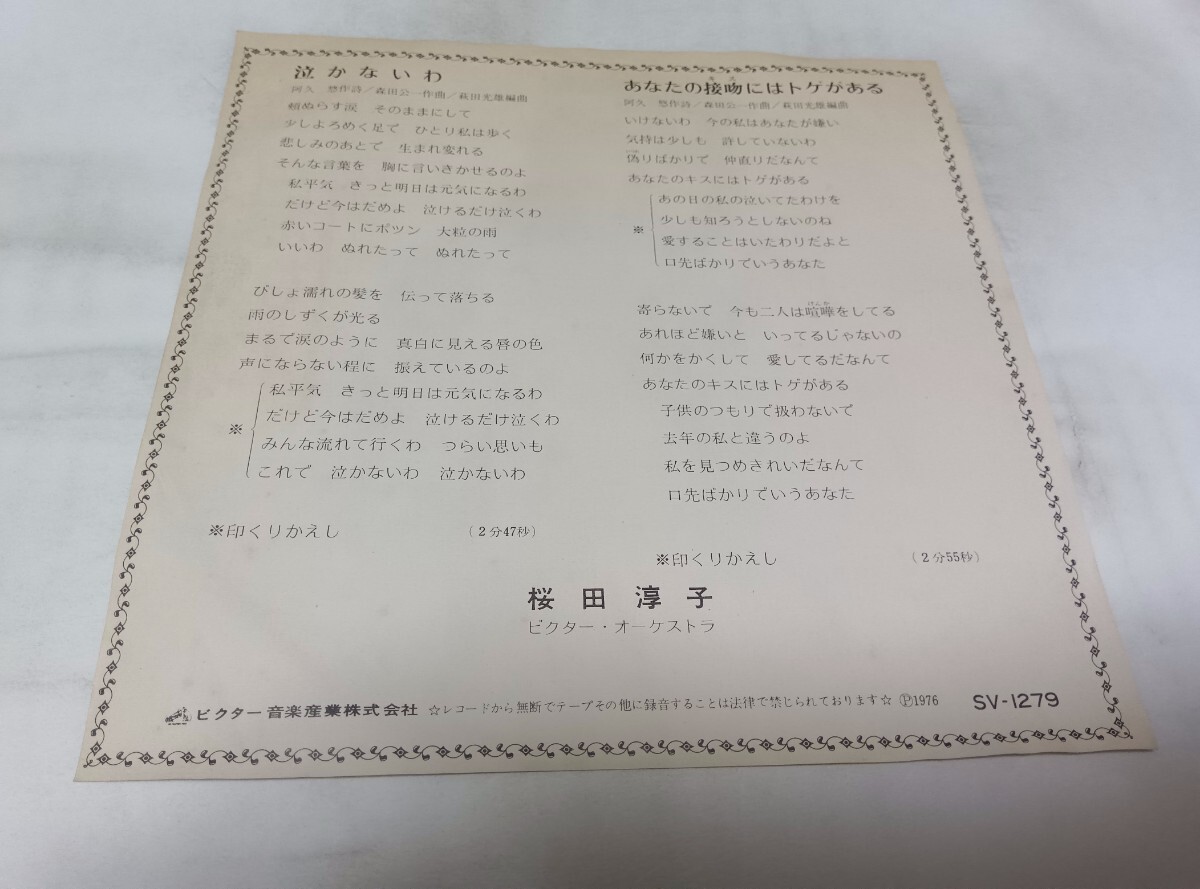 泣かないわ
阿久 悠作詩／森田公一作曲／萩田光雄編曲
頬ぬらす涙 そのままにして
少しよろめく足で ひとり私は歩く
悲しみのあとで 生まれ変れる
そんな言葉を 胸に言いきかせるのよ
私平気 きっと明日は元気になるわ
だけど今はだめよ 泣けるだけ泣くわ
赤いコートにポツン 大粒の雨
いいわ ぬれたって ぬれたって
びしょ濡れの髪を 伝って落ちる
雨のしずくが光る
まるで涙のように 真白に見える唇の色
声にならない程に 振えているのよ
私平気 きっと明日は元気になるわ
だけど今はだめよ 泣けるだけ泣くわ
※
みんな流れて行くわ つらい思いも
これで 泣かないわ 泣かないわ
※印くりかえし (2分47秒)
あなたの接吻にはトゲがある
阿久 悠作詩／森田公一作曲／萩田光雄編曲
いけないわ 今の私はあなたが嫌い
気持は少しも 許していないわ
偽りばかりで 仲直りだなんて
あなたのキスにはトゲがある
あの日の私の泣いてたわけを
少しも知ろうとしないのね
※
愛することはいたわりだよと
口先ばかりでいうあなた
寄らないで 今も二人は喧嘩をしてる
あれほど嫌いと いってるじゃないの
何かをかくして 愛してるだなんて
あなたのキスにはトゲがある
子供のつもりで扱わないで
去年の私と違うのよ
私を見つめきれいだなんて
口先ばかりでいうあなた
※印くりかえし (2分55秒)
桜田淳子
ビクター・オーケストラ
ビクター音楽産業株式会社 ☆レコードから無断でテープその他に録音することは法律で禁じられております☆ Ⓟ1976 SV-1279